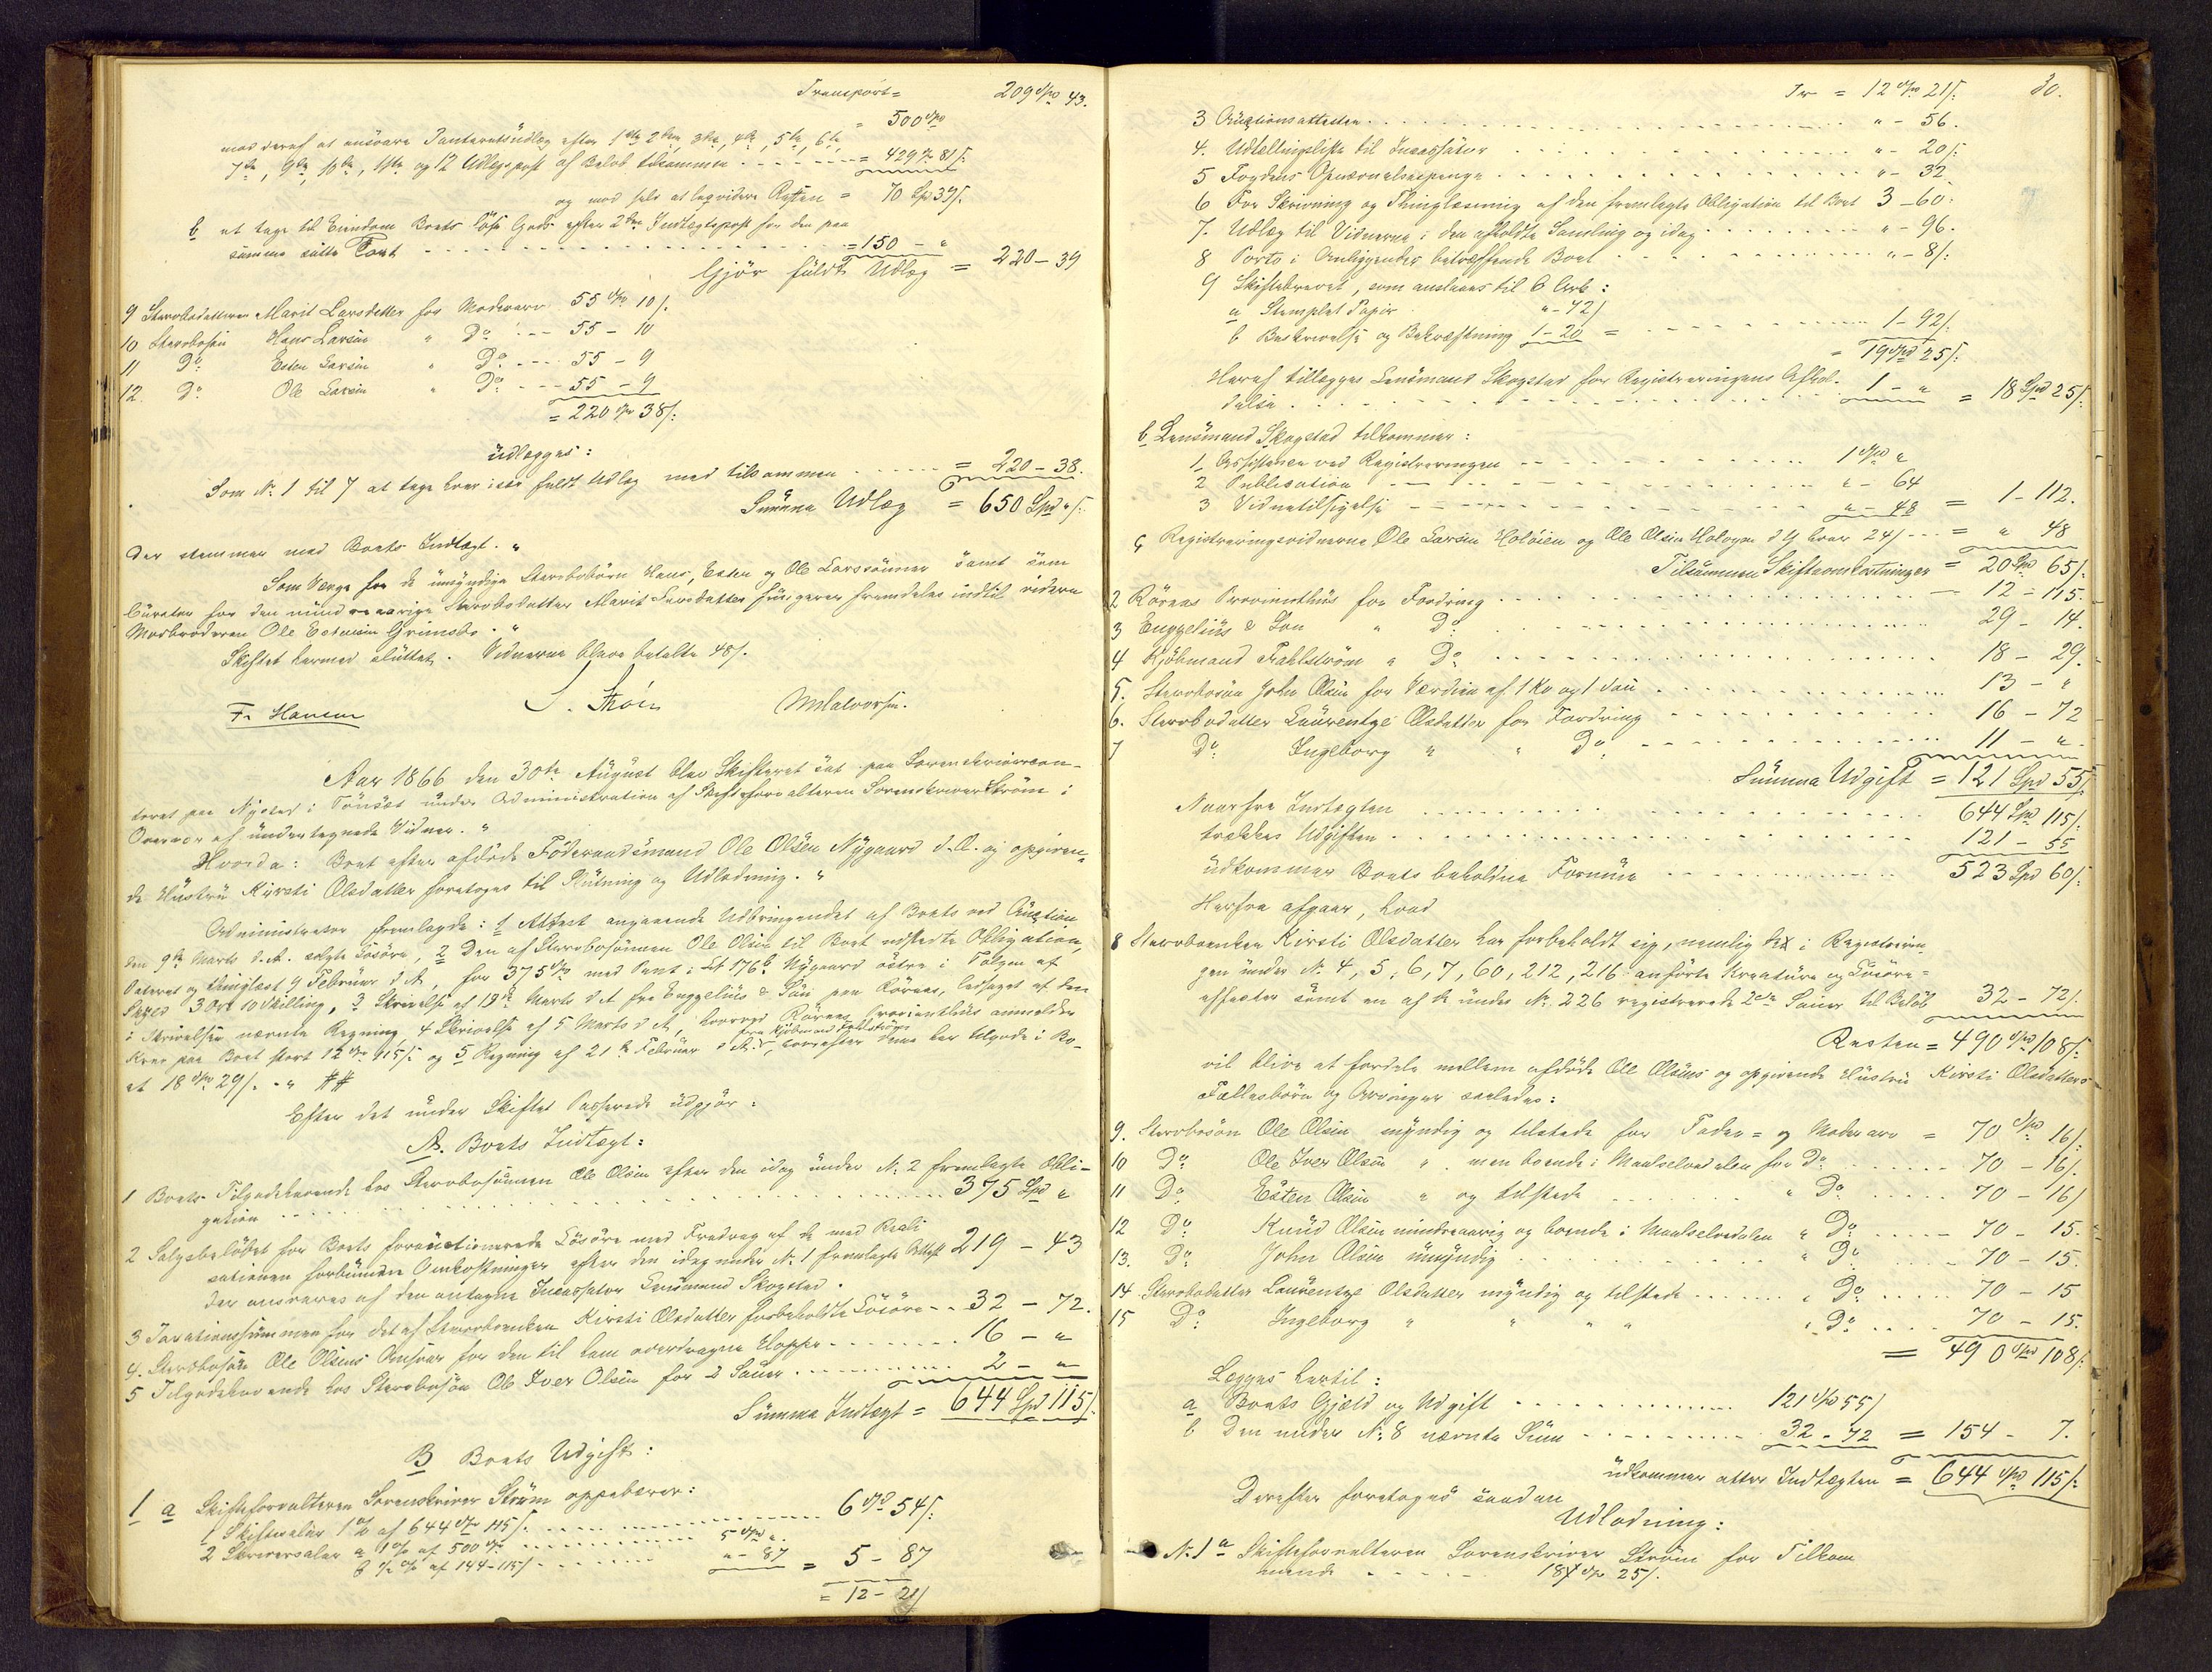 Transport = 209 Spd 43.
= 500 Spd
mod deraf at ansvare Panteretsudlæg efter 1ste 2den, 3die, 4de, 5te, 6te,
7de, 9de, 10de, 11te og 12 Udlægspost af Beløb tilsammen = 429 Spd 81 s:
og mod selv at liqvidere Resten = 70 Spd 39 s.
b at tage til Eiendom Boets Løse Gods efter 2den Indtægtspost for den paa
samme satte Taxt = 150 - "
Gjør fuldt Udlæg = 220 - 39
9 Stervbodatteren Marit Larsdatter for Modrearv 55 Spd 10 s.
10 Stervbosøn Hans Larsen " Do - 55 - 10
11 Do Esten Larsen " Do - 55 - 9
12. Do Ole Larsen " Do - 55 - 9
= 220 Spd 38 s:
udlægges:
Som No 1 til 7 at tage hver sit fuldt Udlæg med tilsammen = 220 - 38.
Summa Udlæg = 650 Spd " s:
der stemmer med Boets Indtægt. "
Som Værge for de umyndige Stervbobørn Hans, Esten og Ole Larssønner samt som
Curator for den mindreaarige Stervbodatter Marit Larsdatter fungerer fremdeles indtil videre
Morbroderen Ole Estensen Grimsbo. "
Skiftet hermed sluttet. Vidnerne bleve betalte 48 s.
F. Hansen S. Thoen M Halvorsen.
Aar 1866 den 30te August blev Skifteret sat paa Sorenskrivercon-
toret paa Nysted i Tønset under Administration af Skifteforvalteren Sorenskriver Strøm i
Overvær af undertegnede Vidner. "
Hvorda: Boet efter afdøde Føderaadsmand Ole Olsen Nygaard d. Æ. og opgiven-
de Hustru Kirsti Olsdatter foretoges til Slutning og Udlodning. "
Administrator fremlagde: 1 Attest angaaende Udbringendet af Boets ved Auction
den 9de Marts d. A. solgte Løsøre, 2 Den af Stervbosønnen Ole Olsen til Boet udstedte Obligation,
dateret og thinglæst 9 Februar d A, for 375 Spd med Pant i Lt 176 b Nygaard østre i Tolgen af
Skyld 3 Ort 10 Skilling, 3 Skrivelse af 13de Marts d A fra Engzelius & Søn paa Røraas, ledsaget af den
i Skrivelsen nævnte Regning, 4 Skrivelse af 5 Marts d A, hvorved Røraas Provianthuus anmelder
Krav paa Boet stort 12 Spd 115 s: og 5 Regning af 21de Februar d A. fra Kjøbmand Fahlstrøm, hvorefter denne har tilgode i Bo-
et 18 Spd 29 s. - "
Efter det under Skiftet Passerede udgjør:
A. Boets Indtægt:
1 Boets Tilgodehavende hos Stervbosønnen Ole Olsen efter den idag under No 2 fremlagte Obli-
gation 375 Spd "
2 Salgsbeløbet for Boets forauctionerede Løsøre med Fradrag af de med Reali
sationen forbundne Omkostninger efter den idag under No 1 fremlagte Attest 219 - 43
der ansvares af den antagne Incassator Lensmand Skogstad.
3 Taxationssummen for det af Stervboenken Kirsti Olsdatter forbeholdte Løsøre 32 - 72.
4. Stervbosøn Ole Olsens Ansvar for den til ham overdragne Hoppe 16 - "
5 Tilgodehavende hos Stervbosøn Ole Iver Olsen for 2 Sauer 2 - "
Summa Indtægt = 644 Spd 115 s:
B Boets Udgift:
1 a Skifteforvalteren Sorenskriver Strøm oppebærer:
1 Skiftesalær 1 % af 644 Spd 115 s. 6 Spd 54 s:
2 Skriversalær a 1 % af 500 Spd 5 Spd "
b ½ % af 144 - 115 s " - 87 = 5 - 87
= 12 - 21 s
Tr = 12 Spd 21 s: 30.
3 Auctionsattesten " - 56.
4. Udtællingsliste til Incassator " - 20 s.
5 Fogdens Opnævnelsespenge " - 32
6 For Skrivning og Thinglæsning af den fremlagte Obligation til Boet 3 - 60:
7. Udlæg til Vidnerne i den afholdte Samling og idag " - 96.
8 Porto i Anliggender betræffende Boet " - 8 s:
9 Skiftebrevet, som anslaaes til 6 Ark:
a Stemplet Papir " - 72 s
b Beskrivelse og Bekræftning 1 - 20 = 1 - 92 s.
= 19 Spd 25 s:
Heraf tillægges Lensmand Skogstad for Registreringens Afhol-
delse 1 - " = 18 Spd 25 s:
b Lensmand Skogstad tilkommer:
1 Assistence ved Registreringen 1 Spd "
2 Publication " - 64
3 Vidnetilsigelse " - 48 = 1 - 112.
c Registreringsvidnerne Ole Larsen Holøien og Ole Olsen Holøyen d Y hver 24 s = " 48
Tilsammen Skifteomkostninger = 20 Spd 65 s:
2 Røraas Provianthuus for Fordring 12 - 115.
3 Engzelius & Søn " Do 29 - 14.
4 Kjøbmand Fahlstrøm " Do 18 - 29.
5. Stervbosøn John Olsen for Værdien af 1 Ko og 1 Sau 13 - "
6. Stervbodatter Laurentze Olsdatter for Fordring 16 - 72
7 Do Ingeborg " " Do 11 - ".
Summa Udgift = 121 Spd 55 s.
Naar fra Indtægten 644 Spd 115 s.
trækkes Udgiften 121 - 55
udkommer Boets beholdne Formue 523 Spd 60 s.
Herfra afgaar, hvad
8 Stervboenken Kirsti Olsdatter har forbeholdt sig, nemlig de i Registrerin-
gen under No 4, 5, 6, 7, 60, 212, 216 anførte Kreature og Løsøre-
effecter samt en af de under No 226 registrerede 2de Sauer til Beløb 32 - 72 s.
Resten = 490 Spd 108 s:
vil blive at fordele mellem afdøde Ole Olsens og opgivende Hustru Kirsti Olsdatters
Fællesbørn og Arvinger saaledes:
9. Stervbosøn Ole Olsen myndig og tilstede for Fader = og Moder arv = 70 Spd 16 s:
10 Do Ole Iver Olsen " men boende i Maalselvedalen for Do 70 - 16 s.
11 Do Esten Olsen " og tilstede " Do 70 - 16 s
12 Do Knud Olsen mindreaarig og boende i Maalselvedalen " Do 70 - 15.
13. Do John Olsen umyndig " Do 70 - 15.
14 Stervbodatter Laurentze Olsdatter myndig og tilstede " Do 70 - 15
15 Do Ingeborg " " " " " Do 70 - 15.
= 490 Spd 108 s:
Lægges hertil:
a Boets Gjæld og Udgift 121 Spd 55 s
b Den under No 8 nævnte Sum 32 - 72 = 154 - 7.
udkommer atter Indtægten = 644 Spd 115 s:
Derefter foretoges saadan
Udlodning:
No 1 a Skifteforvalteren Sorenskriver Strøm for Tilkom
mende 18 Spd 25 s.